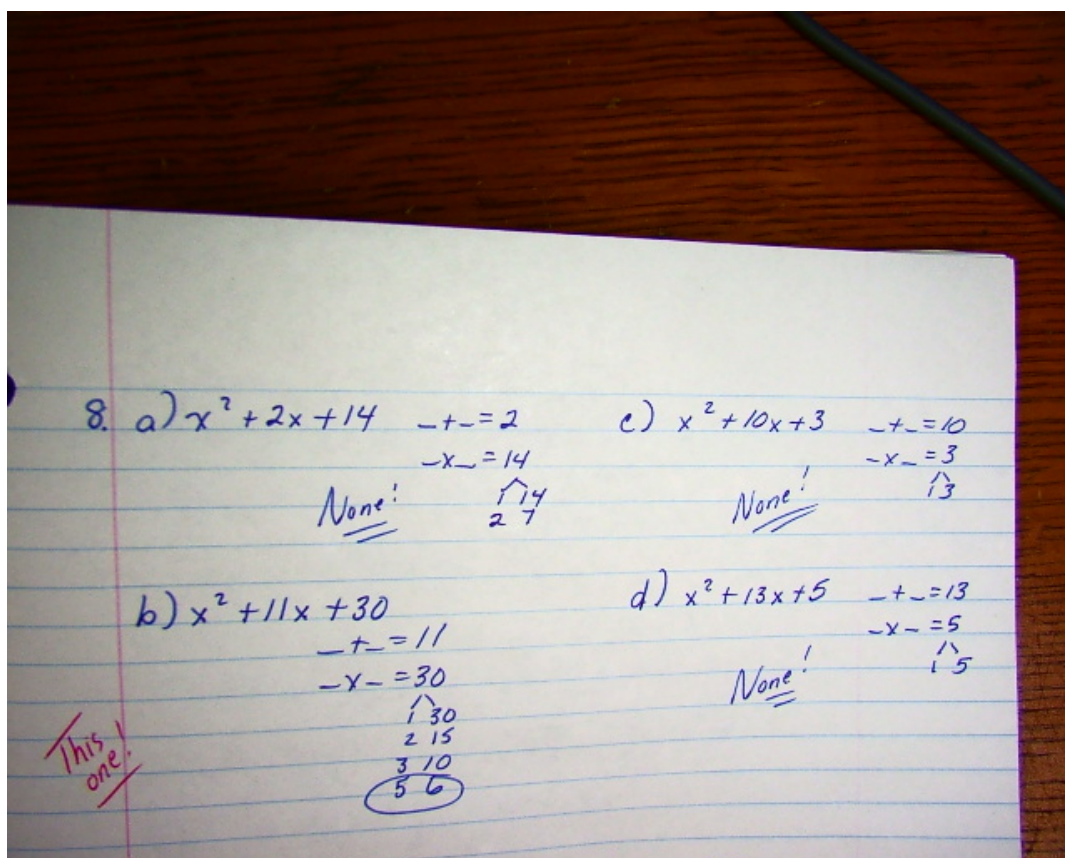 8. a) x² + 2x + 14
_+_ = 2
_x_ = 14
1 14
2 7
None!
b) x² + 11x + 30
_+_ = 11
_x_ = 30
1 30
2 15
3 10
5 6
This one!
c) x² + 10x + 3
_+_ = 10
_x_ = 3
1 3
None!
d) x² + 13x + 5
_+_ = 13
_x_ = 5
1 5
None!